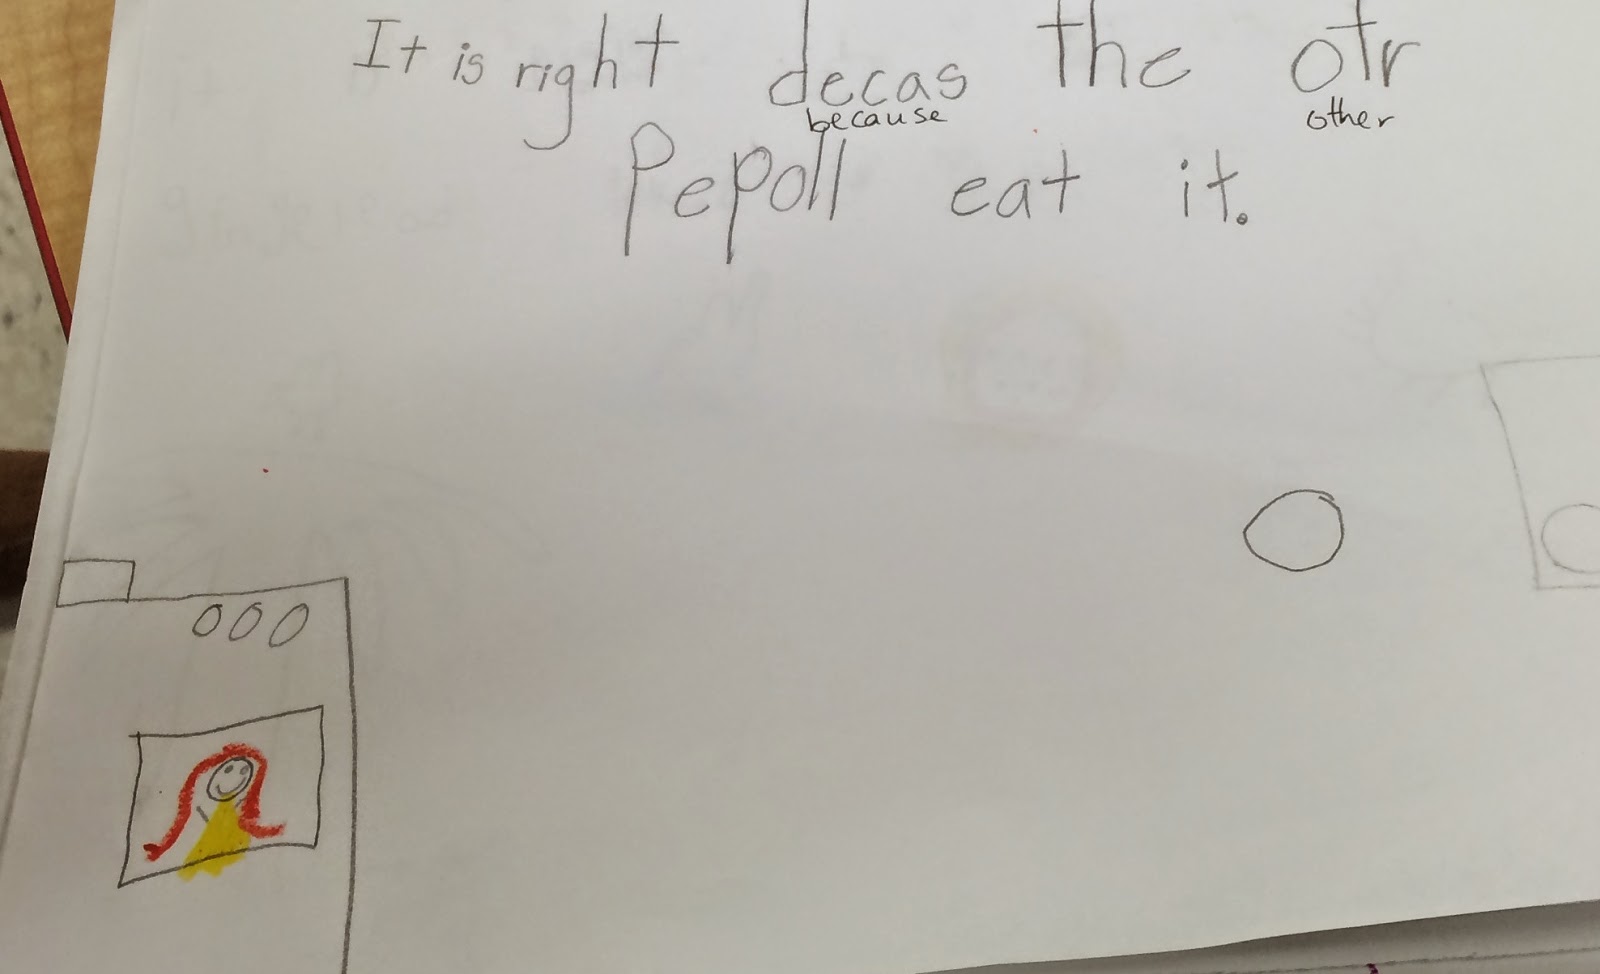 It is right decas the otr
because other
Pepoll eat it.